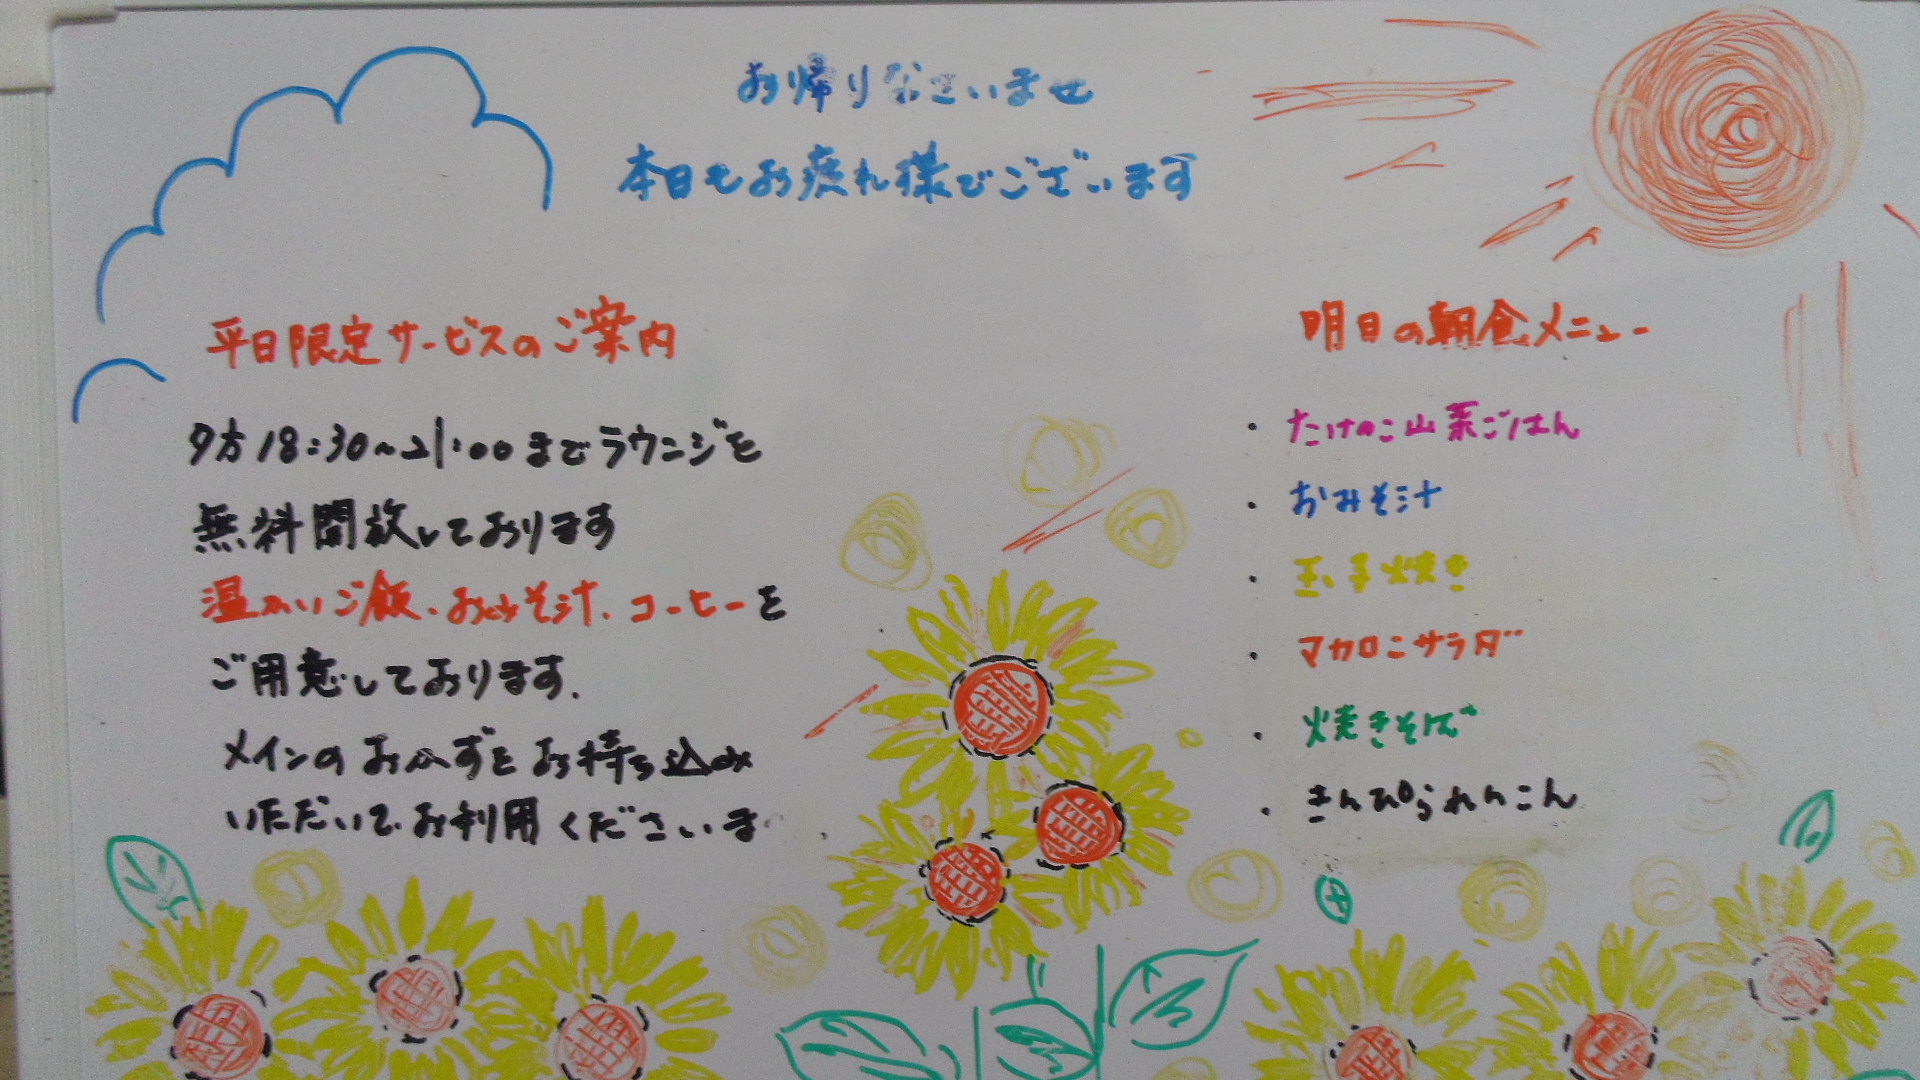 お帰りなさいませ
本日もお疲れ様でございます
平日限定サービスのご案内
夕方18:30〜21:00までラウンジを
無料開放しております
温かいご飯、おみそ汁、コーヒーを
ご用意しております。
メインのおかずをお持ち込み
いただいて、お利用くださいま
明日の朝食メニュー
・たけのこ山菜ごはん
・おみそ汁
・玉子焼き
・マカロニサラダ
・焼きそば
・きんぴられんこん